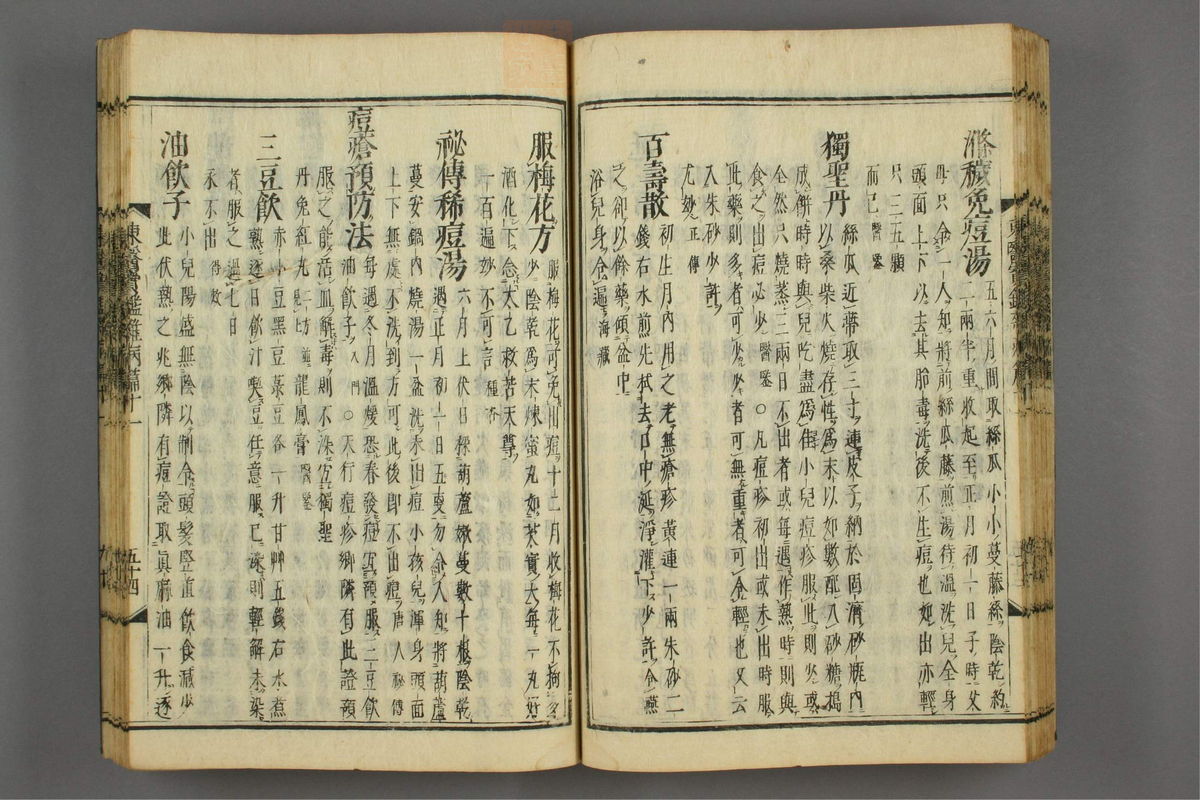 滌穢免痘湯 五六月間取絲瓜小小蔓藤絲陰乾約
二兩半重收起至正月初一日子時父
母只令一人知將前絲瓜藤煎湯待溫洗兒全身
頭面上下以去其胎毒洗後不生痘也如出亦輕
只三五顆
而已醫鑒
獨聖丹 絲瓜近蔕取三寸連皮子納於固濟砂甁內
以桑柴火燒存性爲末以如數配入砂糖搗
成餠時時與兒吃盡爲佳小兒痘疹服此則少或
全然只燒蒸三兩日不出者或每遇作熱時則與
食之出痘必少醫鑒○凡痘疹初出或未出時服
此藥則多者可少少者可無重者可令輕也又云
入朱砂少許
尤妙正傳
百壽散 初生月內用之老無瘡疹黃連一兩朱砂二
錢右水煎先拭去口中涎淨灌下少許令嚥
之卻以餘藥傾盆中
浴兒身令遍海藏
服梅花方 服梅花可免出痘十二月收梅花不拘多
少陰乾爲末煉蜜丸如芡實大每一丸好
酒化下念太乙救苦天尊
一百遍妙不可言種杏
祕傳稀痘湯 六月上伏日採葫蘆嫩蔓數十根陰乾
遇正月初一日五更勿令人知將葫蘆
蔓安鍋內燒湯一盆洗未出痘小孩兒渾身頭面
上下無處不洗到方可此後卽不出痘唐人祕傳
痘瘡預防法 每遇冬月溫煖恐春發痘宜預服三豆飮
油飮子入門○天行痘疹鄕隣有此證預
服之能活血解毒則不染宜獨聖
丹免紅丸上方並龍鳳膏醫鑒
三豆飮 赤小豆黑豆菉豆各一升甘艸五錢右水煮
熟逐日飮汁喫豆任意服已染則輕解未染
者服之過七日
永不出得效
油飮子 小兒陽盛無陰以制令頭髮竪直飮食減少
此伏熱之兆鄕隣有痘證取眞麻油一升逐
東醫寶鑑雜病篇十一
五十四